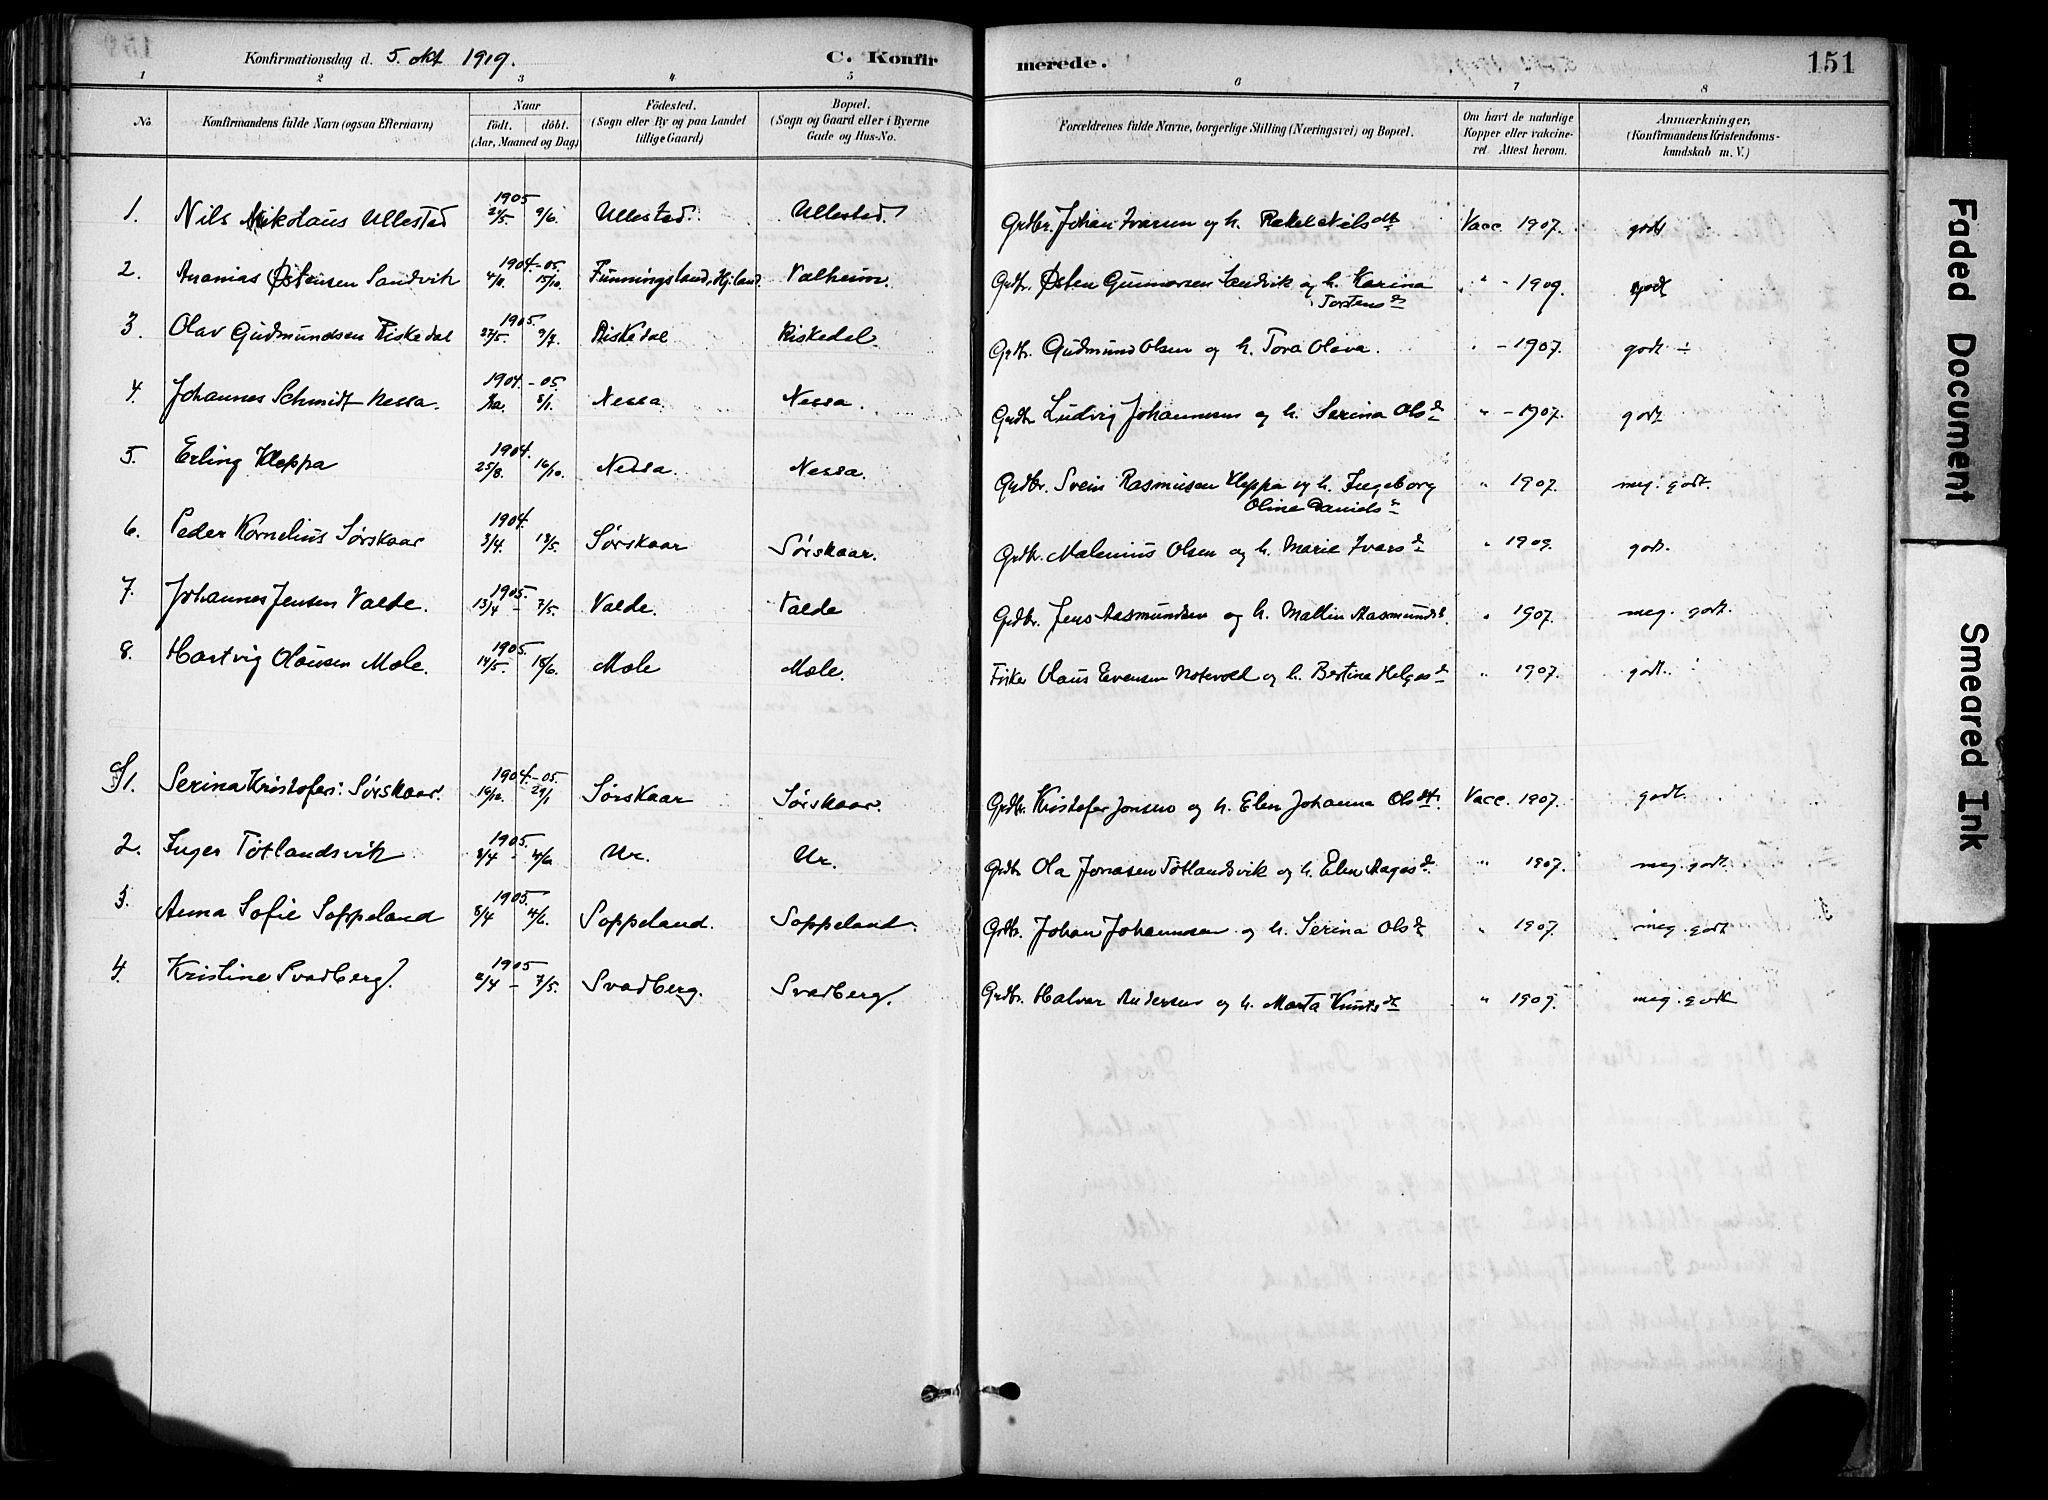 Konfirmationsdag d. 5. okt 1919. C. Konfirmerede. 151
1 2 3 4 5 6 7 8
No. Konfirmandens fulde Navn (ogsaa Efternavn) Naar født. døbt. (Aar, Maaned og Dag) Födested. (Sogn eller By og paa Landet tillige Gaard) Bopæl. (Sogn og Gaard eller i Byerne Gade og Hus-No. Forældrenes fulde Navne, borgerlige Stilling (Næringsvei) og Bopæl. Om havt de naturlige Kopper eller vakcineret Attest herom. Anmærkninger, (Konfirmandens Kristendomskundskab m. V.)
1. Nils Nikolaus Ullestad 1905 2/5. 9/6. Ullestad. Ullestad. Grdbr. Johan Ivarsen og h. Rakel Nilsdt Vacc 1907. godt
2. Ananias Østensen Sandvik 1904.-05. 4/11. 15/10. Funningsland, Hjelmland. Valheim. Grdbr. Østen Gunnarsen Sandvik og h. Karina Torstensd " - 1909. godt
3. Olav Gudmundsen Riskedal 1905. 27/5. 9/7. Riskedal Riskedal. Grdbr. Gudmund Olsen og h. Tora Olava. " - 1907. godt ÷
4. Johannes Schmidt Nessa. 1904.-05. 8/1. Nessa. Nessa. Grdbr Ludvig Johannesen og h. Serina Olsd " - 1907. godt
5. Erling Kleppa 1904. 25/8. 16/10. Nessa. Nessa. Grdbr. Svein Rasmussen Kleppa og h. Ingeborg Oline Danielsd " 1907. meg. godt.
6. Peder Kornelius Sørskaar 1904. 3/4. 13/5. Sørskaar Sørskaar. Grdbr. Malenius Olsen og h. Marie Ivarsd " 1909. godt.
7. Johannes Jensen Valde. 1905. 13/4 - 7/5. Valde. Valde Grdbr. Jens Aasmundsen og h. Mallin Rasmundsd. " 1907. meg. godt.
8. Hartvig Olausen Mæle. 1905. 14/5. 18/6. Mæle Mæle. Fisker Olaus Evensen Notevoll og h. Bertina Helgesd " 1907. godt.
1. Serina Kristofers: Sørskaar. 1904.-05. 16/12. 29/1 Sørskaar Sørskaar. Grdbr. Kristofer Jonsen og h. Elen Johanna Olsdt. Vacc. 1907. godt.
2. Inger Tøtlandsvik 1905. 3/4 - 4/6. Ur. Ur. Grdbr Ola Jonasen Tøtlandsvik og h. Elen Aagesd. " 1907. meg. godt.
3. Anna Sofie Soppeland 1905. 8/4 4/6. Soppeland. Soppeland. Grdbr. Johan Johannesen og h. Serina Olsd " 1907. meg. godt
4. Kristine Svadberg. 1905 2/4 - 7/5. Svadberg. Svadberg. Grdbr. Halvar Andersen og h. Marta Knutsdt " 1909. meg. godt
Faded Document
Smeared Ink